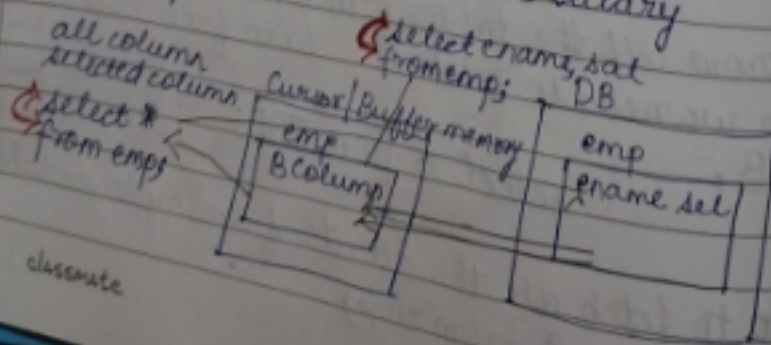 all column
selected column
select *
from emp;
select ename, sal
from emp;
Cursor/Buffer memory
emp
8 Column
DB
emp
ename sal
classmate